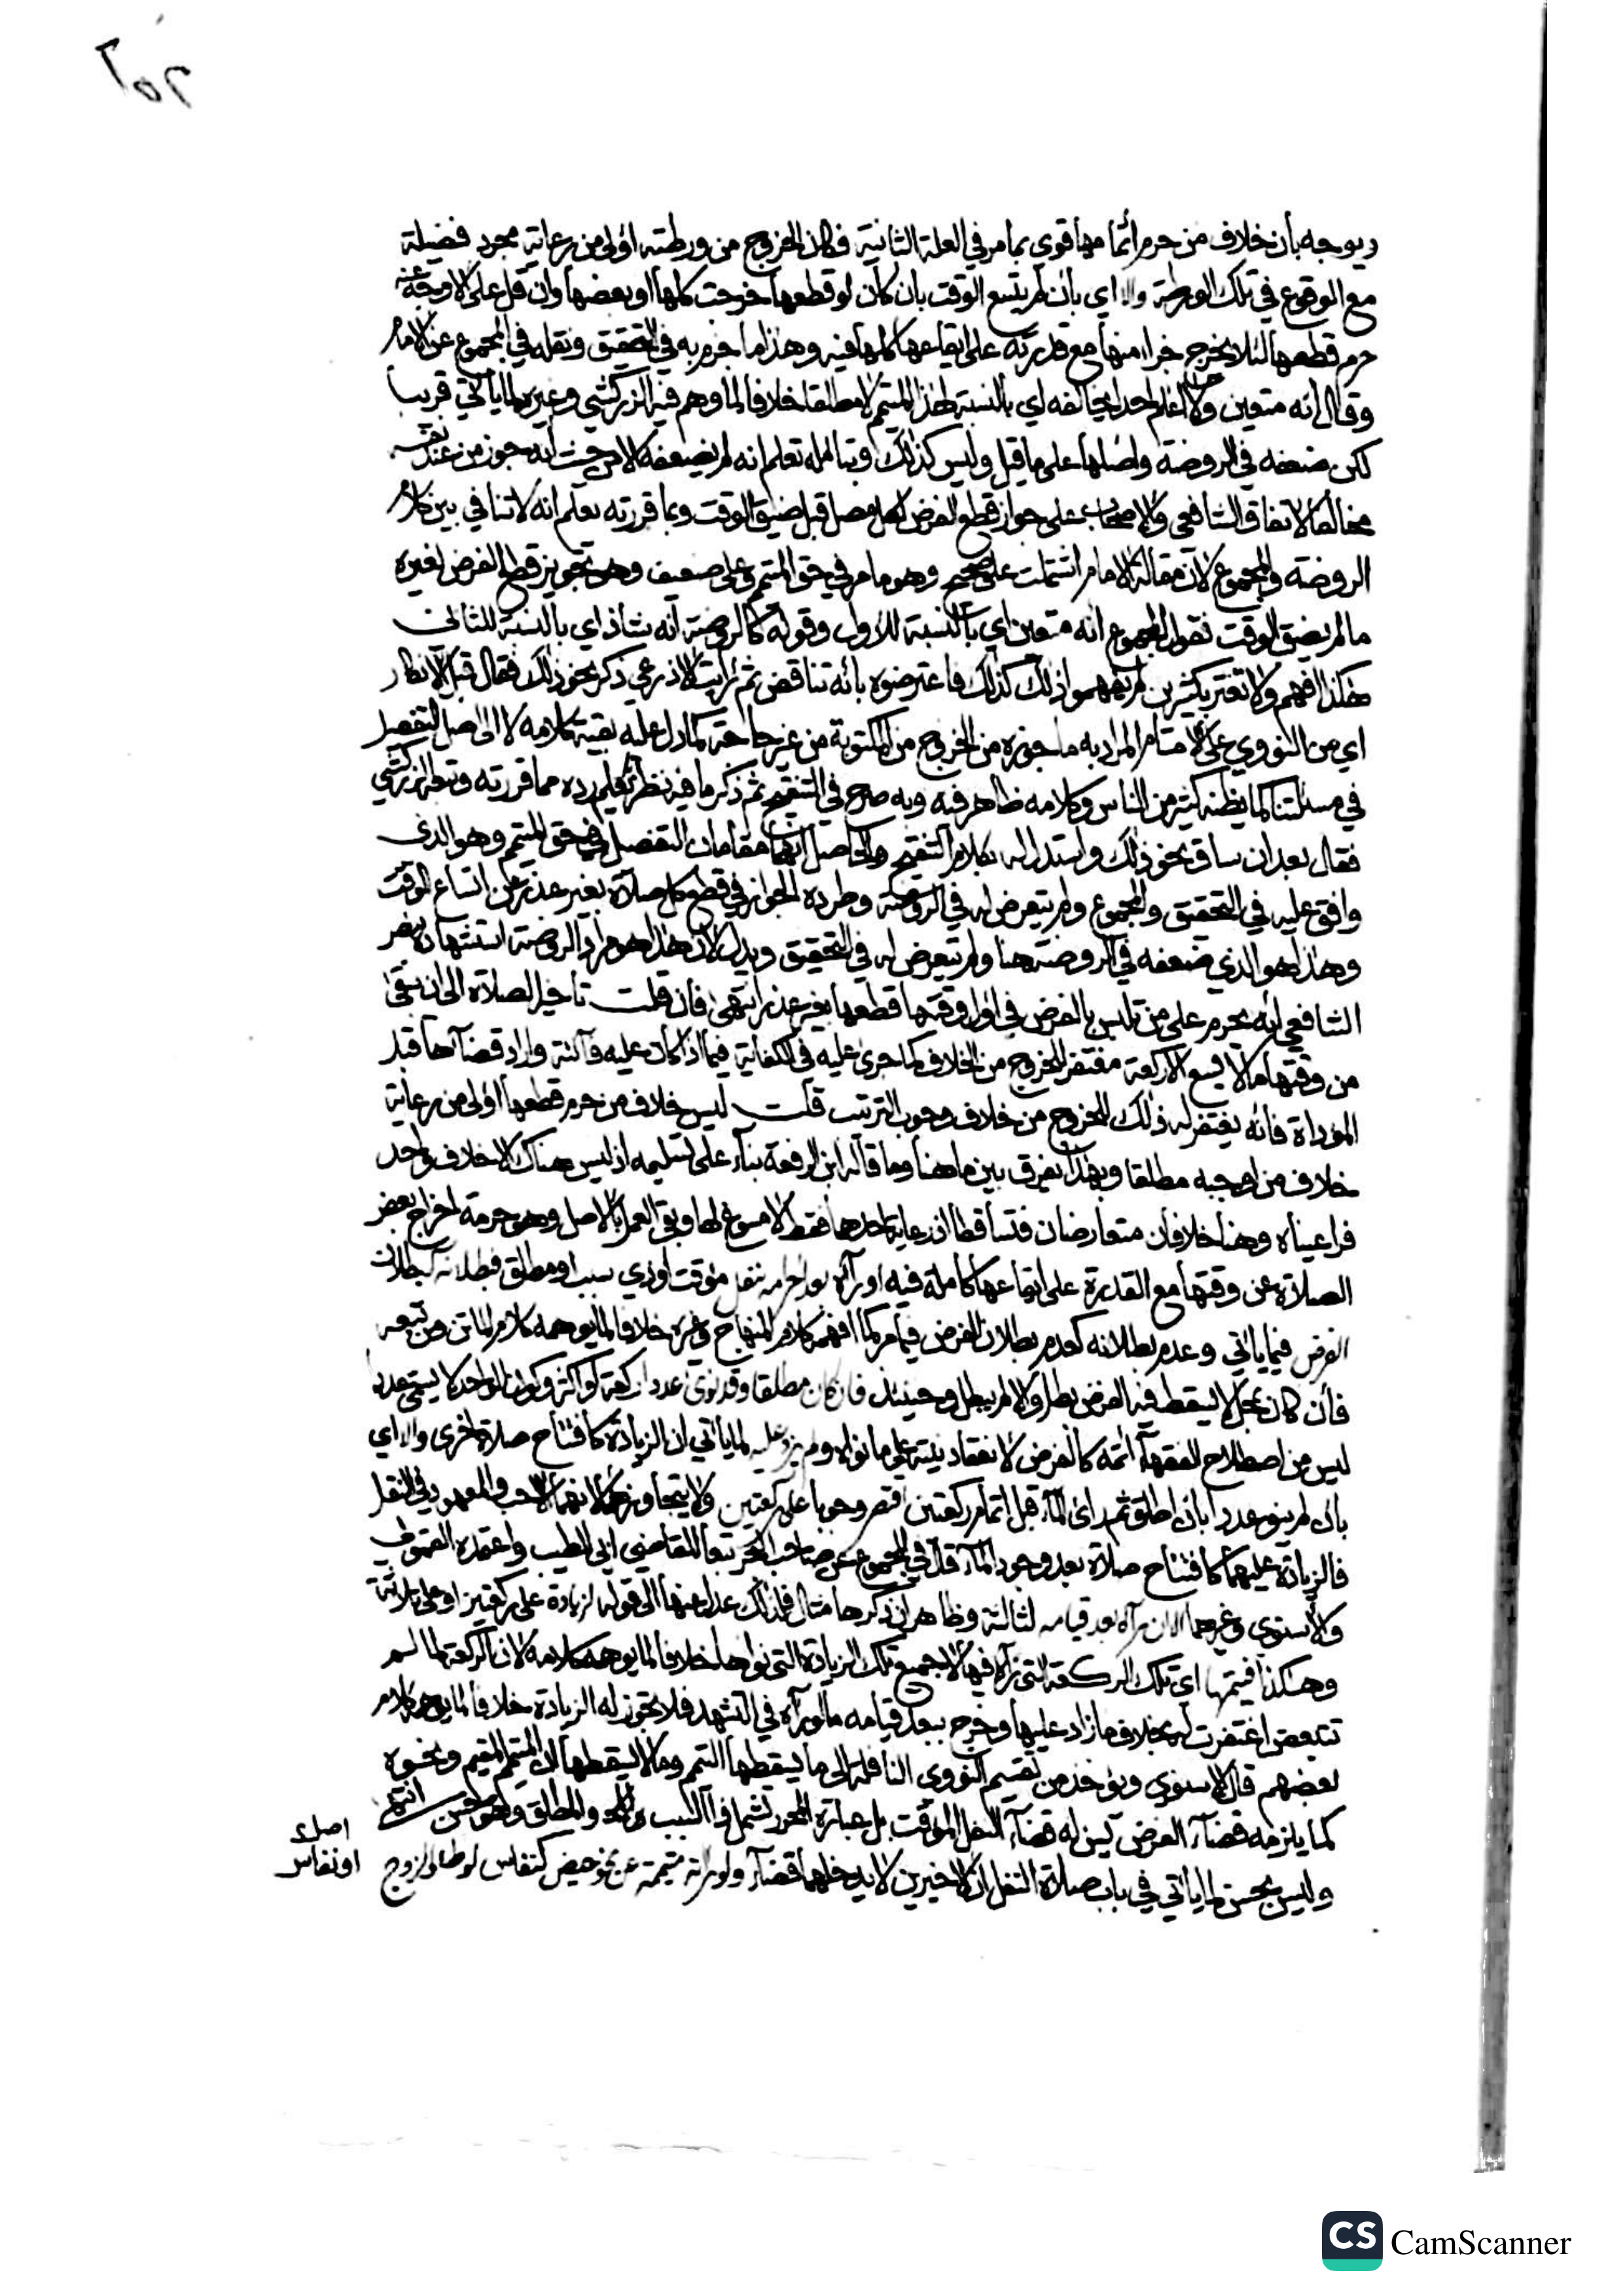 ويوجه بأن خلاف من حرم إتمامها قوي بما مر في العلة الثانية فكان الخروج من ورطته اولى من رعاية مجرد فضيلة
مع الوقوع في تلك الورطة والا اي بأن لم يتسع الوقت بان كان لو قطعها خرجت كلها او بعضها وان قل على الاوجه
حرم قطعها لئلا يخرج جزاء منها مع قدرته على ايقاعها كلها فيه وهذا ما جزم به في التحقيق ونقله في المجموع عن الامام
وقال إنه متعين ولا اعلم احدا يخالفه اي بالنسبة لهذا المتيمم لا مطلقا خلافا لما وهم فيه الزركشي وغيره لما يأتي قريبا
لكن ضعفه في الروضة واصلها على ما قيل وليس كذلك وبتأمله تعلم انه لم يضعفه الا من حيث انه جوز من عند نفسه
مخالفا لاتفاق الشافعي والاصحاب على جواز قطع الفرض لكل مصل قبل ضيق الوقت وبما قررته يعلم انه لا تنافي بين كلام
الروضة والمجموع لان مقالة الامام اشتملت على صحيح وهو ما مر في حق المتيمم وعلى ضعيف وهو تجويز قطع الفرض لغيره
ما لم يضق الوقت فقول المجموع انه متعين اي بالنسبة للاول وقوله كالروضة انه شاذ اي بالنسبة للثاني
هكذا افهم ولا تغتر بكثيرين لم يفهموا ذلك كذلك فاعترضوه بانه تناقض ثم رايت الاذرعي ذكر نحو ذلك فقال قيل الانكار
اي من النووي على الامام المراد به ما جوزه من الخروج من المكتوبة من غير حاجة كما دل عليه بقية كلامه لا الى اصل التفصيل
في مسئلتنا كما يظنه كثير من الناس وكلامه ظاهر فيه وبه صرح في التنقيح ثم ذكر ما فيه نظر يعلم رده مما قررته وتبعه الزركشي
فقال بعد ان ساق نحو ذلك واستدل له بكلام التنقيح والحاصل انهما مقامان التفصيل في حق المتيمم وهو الذي
وافق عليه في التحقيق والمجموع ولم يتعرض له في الروضة وطرده الجواز في قطع كل صلاة بغير عذر عن اتساع الوقت
وهذا هو الذي ضعفه في الروضة هنا ولم يتعرض له في التحقيق ويدل لان هذا هو مراد الروضة استشهاده بنص
الشافعي انه يحرم على من تلبس بالفرض في اول وقتها قطعها بغير عذر انتهى فان قلت تاخير الصلاة الى ان يبقى
من وقتها ما لا يسع الا ركعة مغتفر للخروج من الخلاف كما جرى عليه في الكفاية فيما اذا كان عليه فائتة واراد قضاءها قبل
المؤداة فانه يغتفر له ذلك للخروج من خلاف وجوب الترتيب قلت ليس خلاف من حرم قطعها اولى من رعاية
خلاف من اوجبه مطلقا وبهذا يفرق بين ما هنا وما قاله ابن الرفعة بناء على تسليمه اذ ليس هناك الا خلاف واحد
فراعيناه وهنا خلافان متعارضان فتساقطا اذ رعاية احدهما فقط لا مسوغ لها وبقي العمل بالاصل وهو حرمة اخراج بعض
الصلاة عن وقتها مع القدرة على ايقاعها كاملة فيه او رآه بعد احرامه بنفل مؤقت او ذي سبب او مطلق فبطلانه كبطلان
الفرض فيما ياتي وعدم بطلانه كعدم بطلان الفرض فيما مر كما افهمه كلام المنهاج وغيره خلافا لما يوهمه كلام الماتن ومن تبعه
فان كان بمحل لا يسقط فيه الفرض بطل والا لم يبطل وحينئذ فان كان مطلقا وقد نوى عددا ركعة او اكثر وكون الواحد لا يسمى عددا
ليس من اصطلاح الفقهاء اتمه كالفرض لانعقاد نيته على ما نواه ولم يزد عليه لما ياتي ان الزيادة كافتتاح صلاة اخرى والا اي
بان لم ينو عددا بان اطلق ثم راى الماء قبل اتمام ركعتين اقتصر وجوبا على ركعتين ولا يتجاوزهما لانهما الاحب والمعهود في النفل
فالزيادة عليهما كافتتاح صلاة بعد وجود الماء قال في المجموع عن صاحب البحر تبعا للقاضي ابي الطيب واعتمده القمولي
والاسنوي وغيرهما الا ان رآه بعد قيامه لثالثة وظاهر ان ذكرها مثال فلذلك عدل عنها الى قوله لزيادة على ركعتين او على ثلاثة
وهكذا فيتمها اي تلك الركعة التي رآه فيها لا جميع تلك الزيادة التي نواها خلافا لما يوهمه كلامه لان الركعة لما لم
تتبعض اغتفرت له بخلاف ما زاد عليها وخرج ببعد قيامه ما لو رآه في التشهد فلا يجوز له الزيادة خلافا لما يوهمه كلام
بعضهم قال الاسنوي ويؤخذ من تقسيم النووي النافلة الى ما يسقطها التيمم وما لا يسقطها ان المتيمم المقيم ونحوه
كما يلزمه قضاء الفرض يسن له قضاء النفل المؤقت بل عبارة المحرر تشمل ذا السبب والمطلق وهو حسن انتهى
وليس بحسن لما ياتي في باب صلاة النفل ان الاخيرين لا يدخلهما قضاء ولو راته متيممة عن نحو حيض كنفاس لوطء الزوج
او نفاس